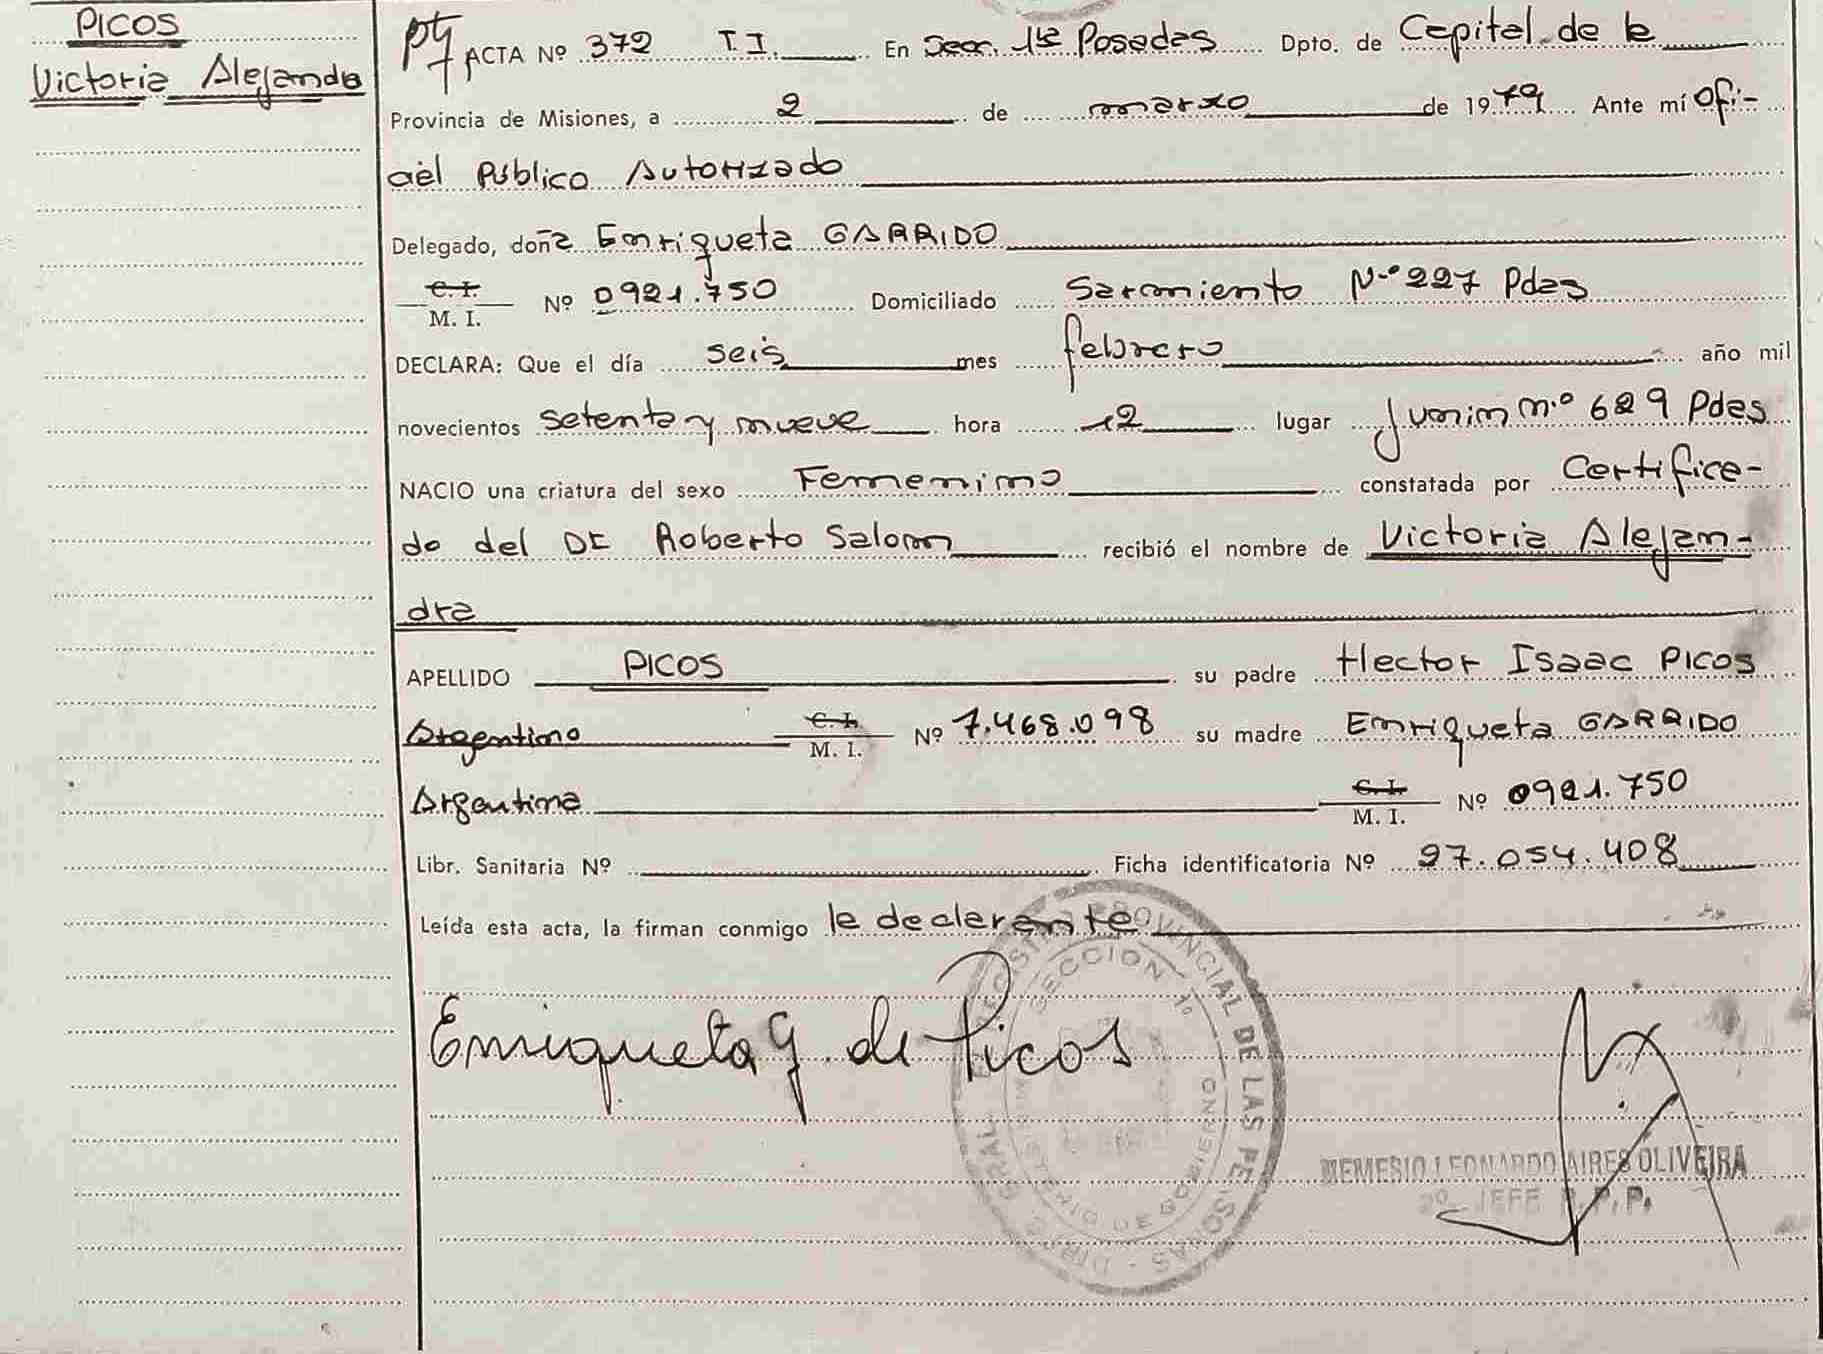 PICOS
Victoria Alejandra
ACTA Nº 372 T.I. En Secc. 1ra Posadas Dpto. de Capital de la
Provincia de Misiones, a 2 de marzo de 1979 Ante mí Ofi-
cial Público Autorizado
Delegado, doña Enriqueta GARRIDO
C. I.
M. I. Nº 0921.750 Domiciliado Sarmiento Nº 227 Pdas
DECLARA: Que el día seis mes febrero año mil
novecientos setenta y nueve hora 12 lugar Junin n.º 629 Pdas
NACIO una criatura del sexo Femenino constatada por Certifica-
do del Dr Roberto Salom recibió el nombre de Victoria Alejan-
dra
APELLIDO PICOS su padre Hector Isaac PICOS
Argentino C. I.
M. I. Nº 7.468.098 su madre Enriqueta GARRIDO
Argentina C. I.
M. I. Nº 0921.750
Libr. Sanitaria Nº Ficha identificatoria Nº 27.054.408
Leída esta acta, la firman conmigo la declarante
Enriqueta G. de Picos
PROVINCIAL DE LAS PERSONAS
SECCION 1º
MINISTERIO DE GOBIERNO
NEMESIO LEONARDO AIRES OLIVEIRA
2º JEFE R.P.P.